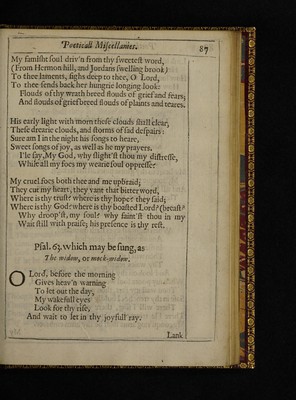 Poeticall Miscellanies. 87
My famisht soul driv'n from thy sweetest word,
(From Hermon hill, and Jordans swelling brook)
To thee laments, sighs deep to thee, O Lord,
To thee sends back her hungrie longing look:
Flouds of thy wrath breed flouds of grief and fears;
And flouds of grief breed flouds of plaints and teares.
His early light with morn these clouds shall clear,
These drearie clouds, and storms of sad despairs:
Sure am I in the night his songs to heare,
Sweet songs of joy, as well as he my prayers.
I'le say, My God, why slight'st thou my distresse,
While all my foes my wearie soul oppresse?
My cruel foes both thee and me upbraid;
They cut my heart, they vant that bitter word,
Where is thy trust? where is thy hope? they said;
Where is thy God? where is thy boasted Lord? (breast?
Why droop'st, my soul? why faint'st thou in my
Wait still with praise; his presence is thy rest.
Psal. 63. which may be sung, as
The widow, or mock-widow.
O Lord, before the morning
Gives heav'n warning
To let out the day,
My wakefull eyes
Look for thy rise,
And wait to let in thy joyfull ray.
Lank